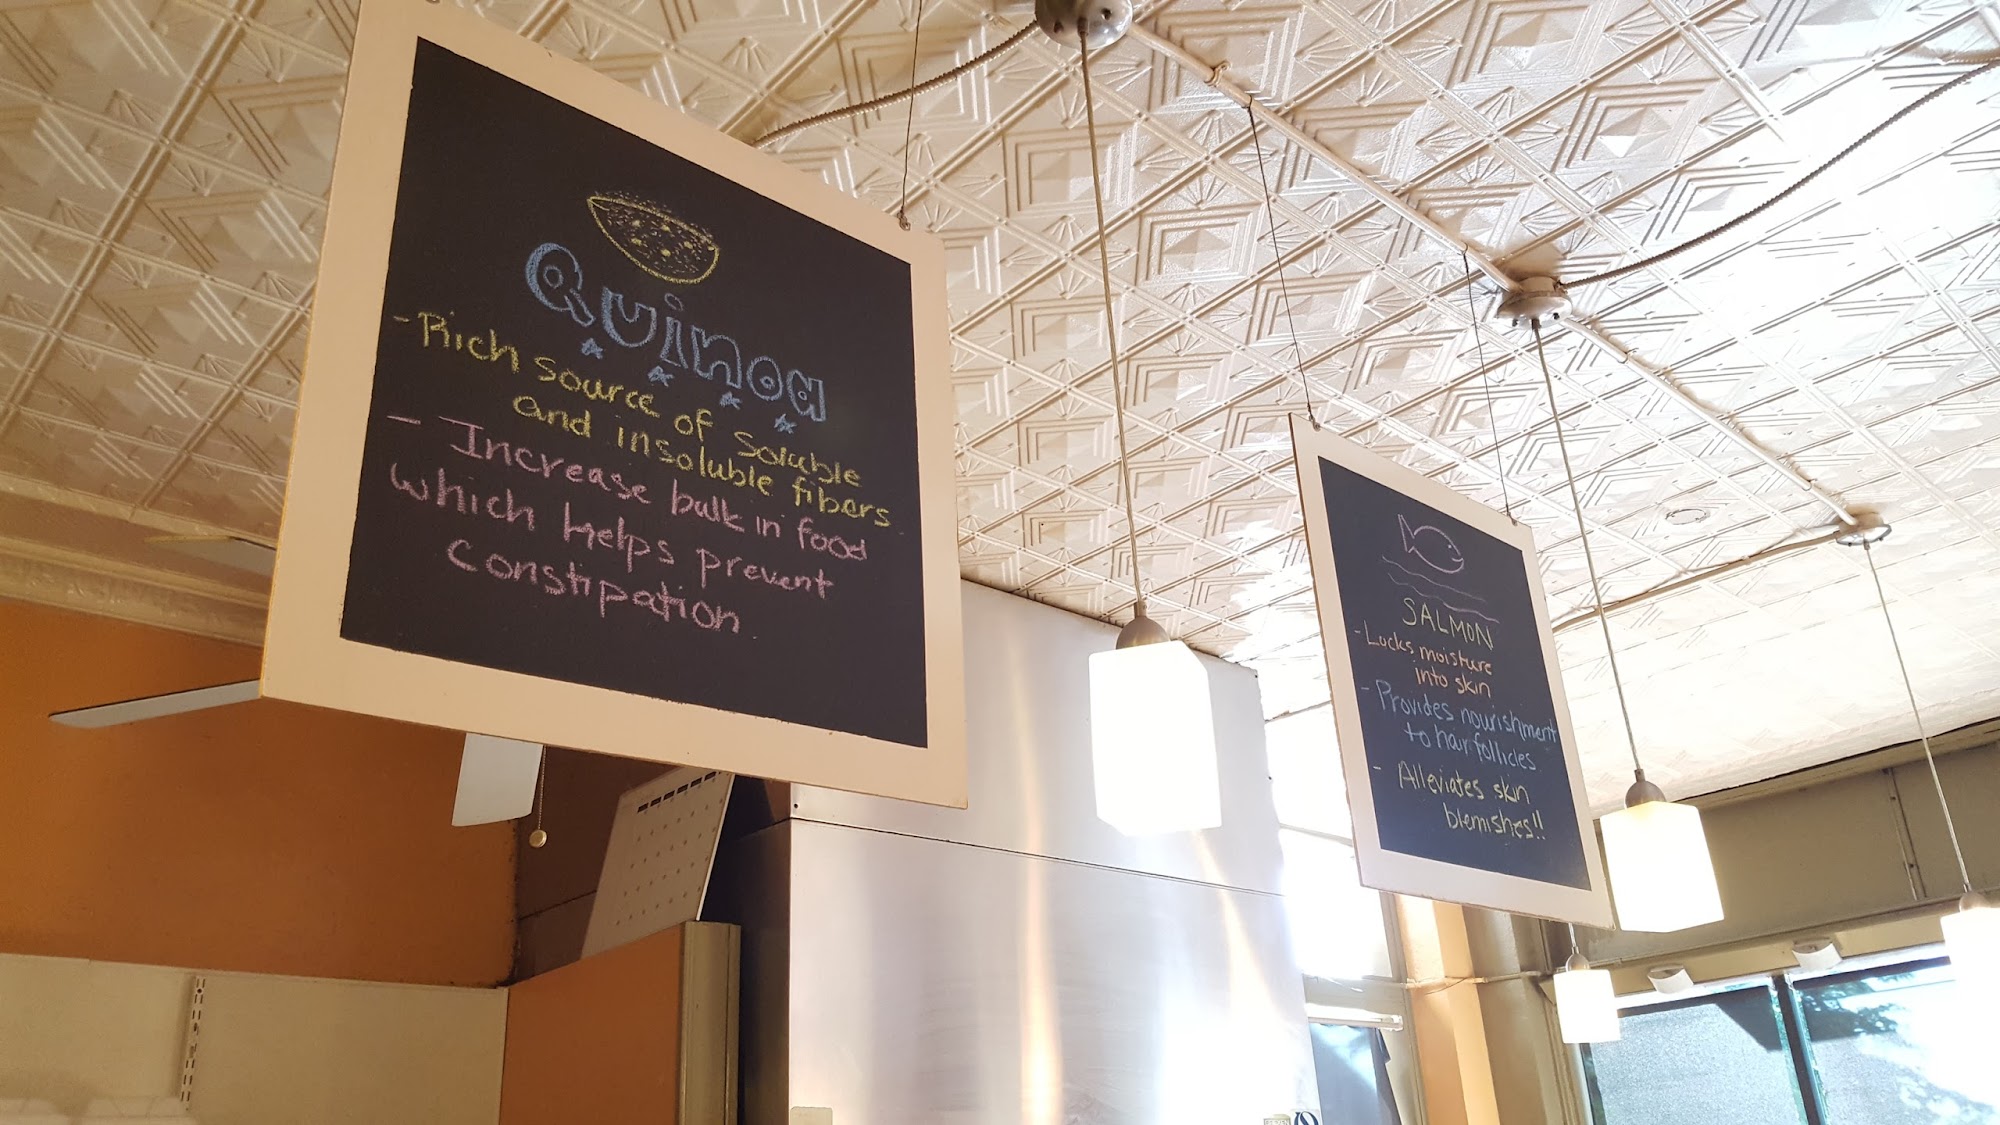 Quinoa
- Rich source of soluble
and insoluble fibers
- Increase bulk in food
which helps prevent
constipation.
SALMON
- Locks moisture
into skin
- Provides nourishment
to hair follicles.
- Alleviates skin
blemishes!!